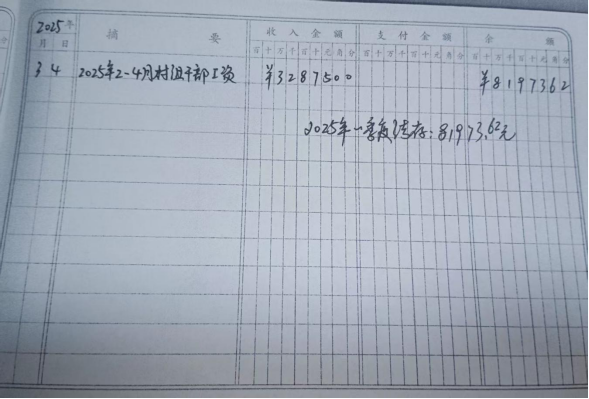 2025年 摘 要 收入金额 支付金额 余 额
月 日 百十万千百十元角分 百十万千百十元角分 百十万千百十元角分
3 4 2025年2-4月村组干部工资 ¥3287500 ¥8197362
2025年一季度结存:81973.62元